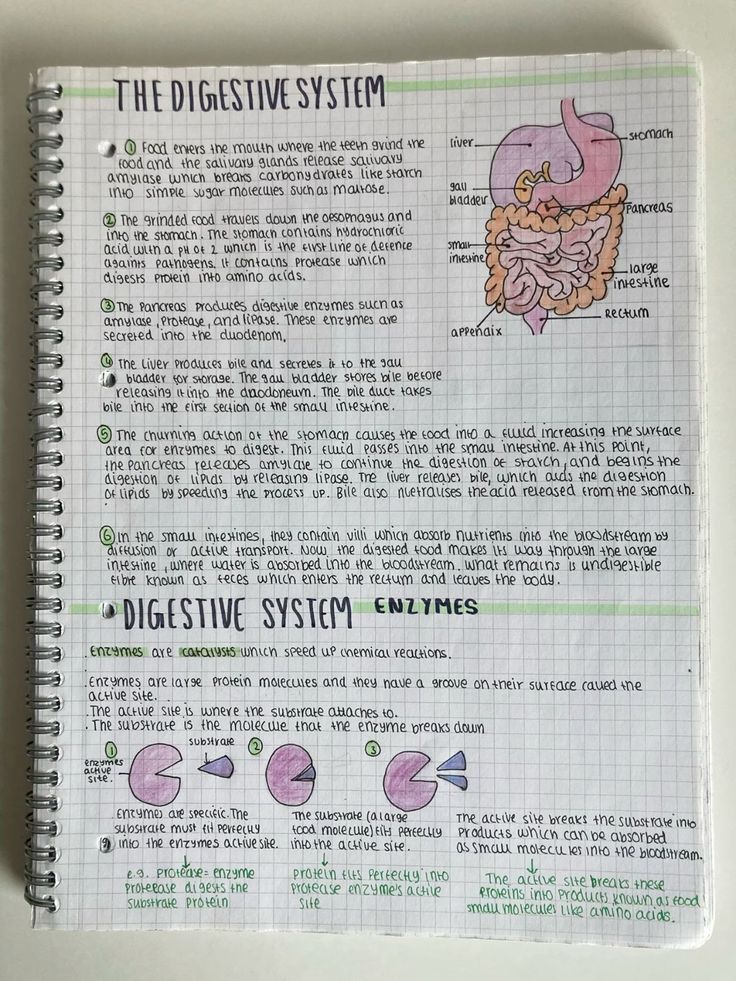 THE DIGESTIVE SYSTEM
① Food enters the mouth where the teeth grind the
food and the salivary glands release salivary
amylase which breaks carbohydrates like starch
into simple sugar molecules such as maltose.
② The grinded food travels down the oesophagus and
into the stomach. The stomach contains hydrochloric
acid with a pH of 2 which is the first line of defence
againts pathogens. It contains protease which
digests protein into amino acids.
③ The pancreas produces digestive enzymes such as
amylase, protease, and lipase. These enzymes are
secreted into the duodenum.
④ The liver produces bile and secretes it to the gall
bladder for storage. The gall bladder stores bile before
releasing it into the duodoneum. The bile duct takes
bile into the first section of the small intestine.
liver
stomach
gall
bladder
pancreas
small
intestine
large
intestine
rectum
appendix
⑤ The churning action of the stomach causes the food into a fluid increasing the surface
area for enzymes to digest. This fluid passes into the small intestine. At this point,
the pancreas releases amylase to continue the digestion of starch, and begins the
digestion of lipids by releasing lipase. The liver releases bile, which aids the digestion
of lipids by speeding the process up. Bile also nuetralises the acid released from the stomach.
⑥ In the small intestines, they contain villi which absorb nutrients into the bloodstream by
diffusion or active transport. Now, the digested food makes its way through the large
intestine, where water is absorbed into the bloodstream. What remains is undigestible
fibre known as feces which enters the rectum and leaves the body.
DIGESTIVE SYSTEM ENZYMES
. Enzymes are catalysts which speed up chemical reactions.
. Enzymes are large protein molecules and they have a groove on their surface called the
active site.
. The active site is where the substrate attaches to.
. The substrate is the molecule that the enzyme breaks down
①
substrate
②
③
enzymes
active
site.
Enzymes are specific. The
substrate must fit perfectly
into the enzymes active site.
↓
e.g. protease = enzyme
protease digests the
substrate protein
The substrate (a large
food molecule) fits perfectly
into the active site.
↓
protein fits perfectly into
protease enzyme's active
site
The active site breaks the substrate into
products which can be absorbed
as small molecules into the bloodstream.
↓
The active site breaks these
proteins into products known as food
small molecules like amino acids.